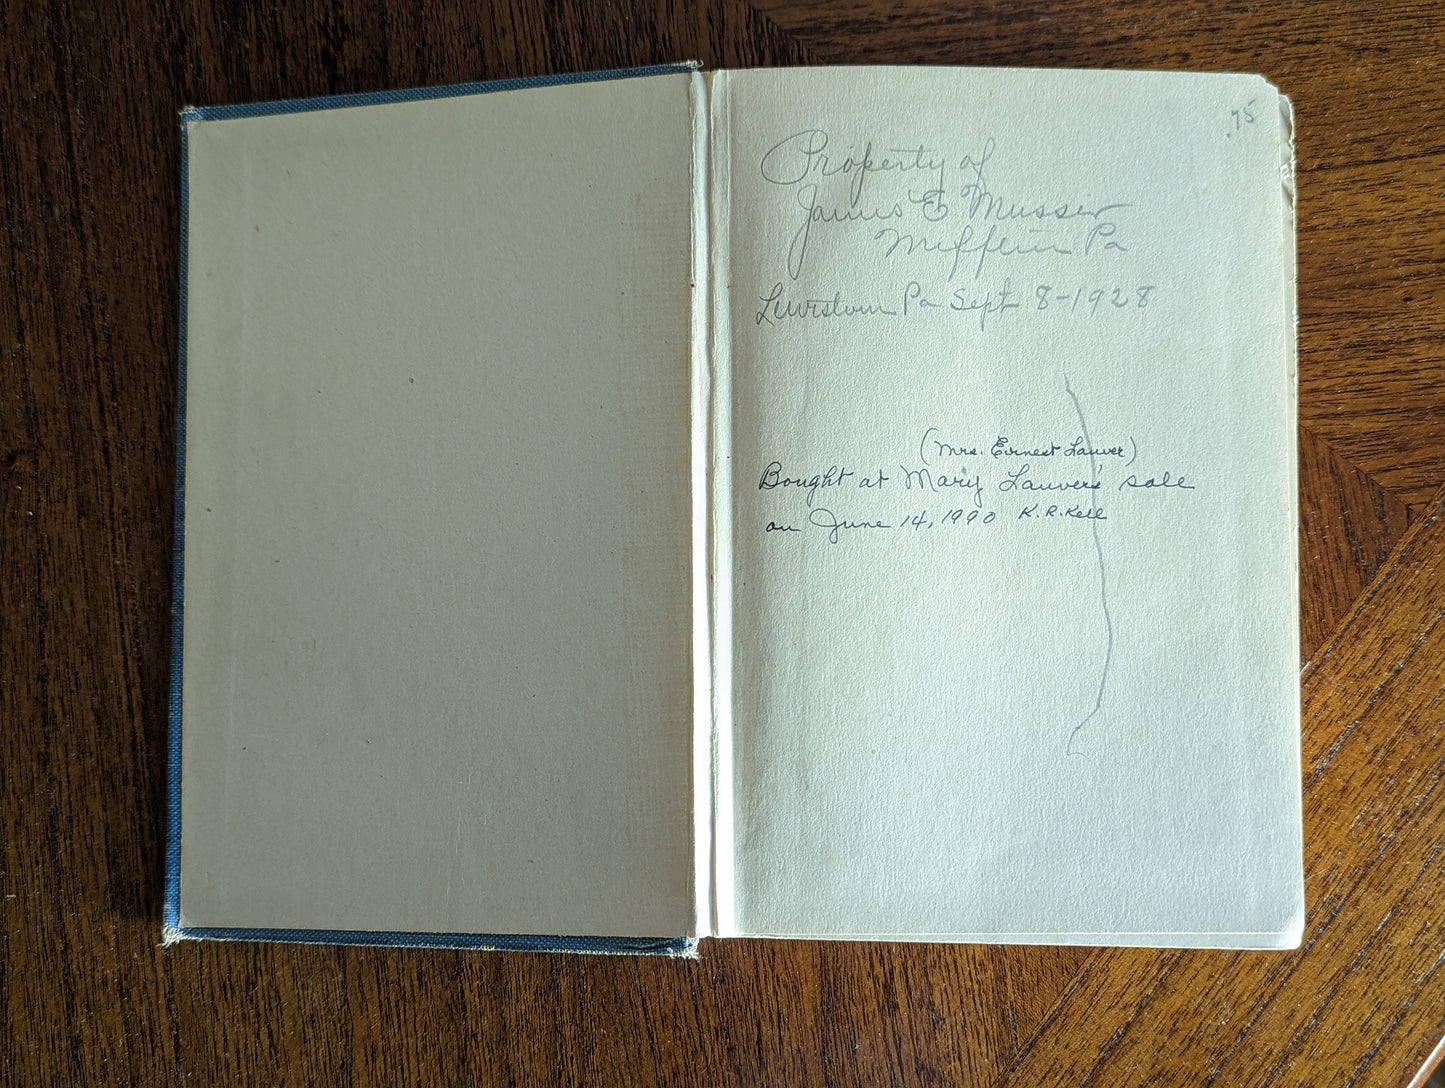 .75
Property of
James E Musser
Mifflin Pa
Lewistown Pa Sept 8-1928
(Mrs. Ernest Lauver)
Bought at Mary Lauver's sale
on June 14, 1990 K.R.Kell